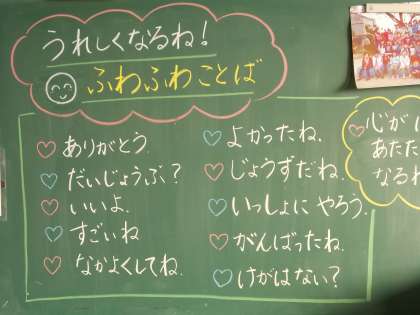 うれしくなるね!
ふわふわことば
ありがとう.
だいじょうぶ?
いいよ.
すごいね
なかよくしてね.
よかったね.
じょうずだね.
いっしょに やろう.
がんばったね.
けがはない?
心が
あたた
なるね